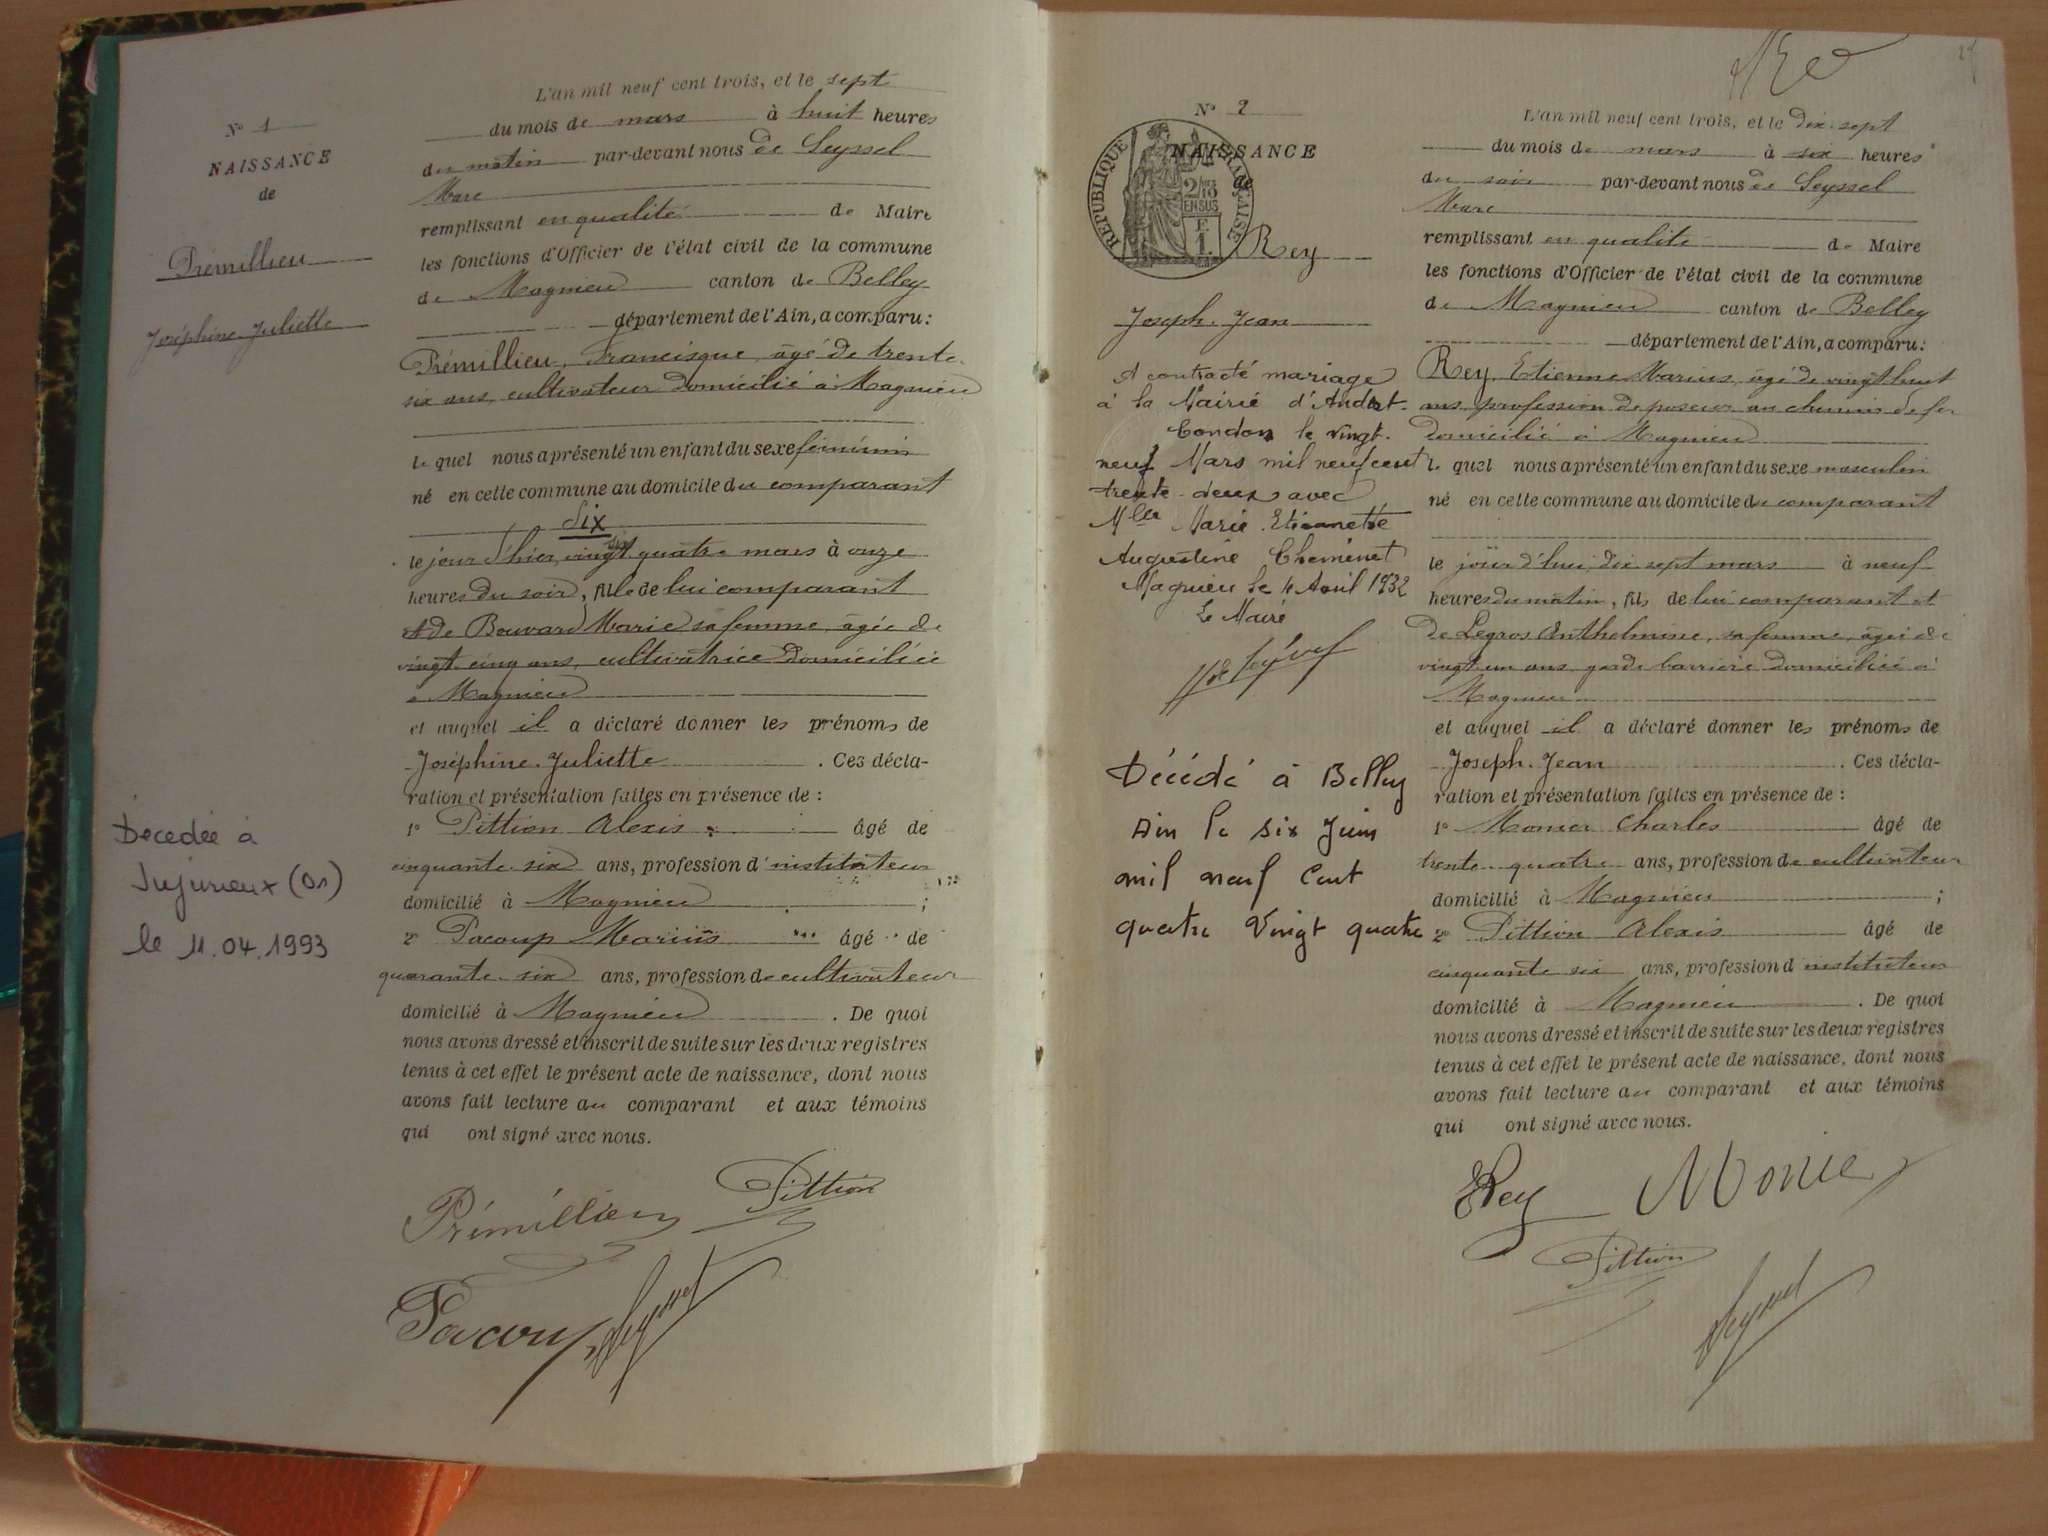 N° 1
NAISSANCE
de
Prémillieu
Joséphine Juliette
Décédée à
Jujurieux (01)
le 11.04.1993
L'an mil neuf cent trois, et le sept
du mois de mars à huit heures
du matin par-devant nous de Seyssel
Marc
remplissant en qualité de Maire
les fonctions d'Officier de l'état civil de la commune
de Magnieu canton de Belley
département de l'Ain, a comparu:
Prémillieu, Francisque, âgé de trente
six ans, cultivateur domicilié à Magnieu
le quel nous a présenté un enfant du sexe féminin
né en cette commune au domicile du comparant
six
le jour d'hier, vingt quatre mars à onze
heures du soir, fille de lui comparant
et de Bouvard Marie sa femme, âgée de
vingt cinq ans, cultivatrice domiciliée
à Magnieu
et auquel il a déclaré donner les prénoms de
Joséphine Juliette . Ces décla-
ration et présentation faites en présence de :
1° Pittion Alexis âgé de
cinquante six ans, profession d'instituteur
domicilié à Magnieu ;
2° Pacoup Marius âgé de
quarante-six ans, profession de cultivateur
domicilié à Magnieu . De quoi
nous avons dressé et inscrit de suite sur les deux registres
tenus à cet effet le présent acte de naissance, dont nous
avons fait lecture au comparant et aux témoins
qui ont signé avec nous.
Prémillieu Pittion
Pacoup
N° 2
NAISSANCE
de
RÉPUBLIQUE FRANÇAISE
2/10 EN SUS
Rey
Joseph. Jean
A contracté mariage
à la Mairie d'Andert-
Condon le vingt-
neuf Mars mil neuf cent
trente-deux avec
Melle Marie Etiennette
Augustine Cheminet
Magnieu le 4 Avril 1932
Le Maire
Décédé à Belley
Ain le six Juin
mil neuf cent
quatre vingt quatre
L'an mil neuf cent trois, et le dix-sept
du mois de mars à six heures
du soir par-devant nous de Seyssel
Marc
remplissant en qualité de Maire
les fonctions d'Officier de l'état civil de la commune
de Magnieu canton de Belley
département de l'Ain, a comparu:
Rey, Etienne Marius, âgé de vingt huit
ans, profession de poseur au chemin de fer
domicilié à Magnieu
le quel nous a présenté un enfant du sexe masculin
né en cette commune au domicile du comparant
le jour d'hui, dix sept mars à neuf
heures du matin, fils de lui comparant et
de Legros Anthelmine, sa femme, âgée de
vingt un ans garde barrière domiciliée à
Magnieu
et auquel il a déclaré donner les prénoms de
Joseph. Jean . Ces décla-
ration et présentation faites en présence de :
1° Monier Charles âgé de
trente-quatre ans, profession de cultivateur
domicilié à Magnieu ;
2° Pittion Alexis âgé de
cinquante six ans, profession d'instituteur
domicilié à Magnieu . De quoi
nous avons dressé et inscrit de suite sur les deux registres
tenus à cet effet le présent acte de naissance, dont nous
avons fait lecture au comparant et aux témoins
qui ont signé avec nous.
ERey Monier
Pittion